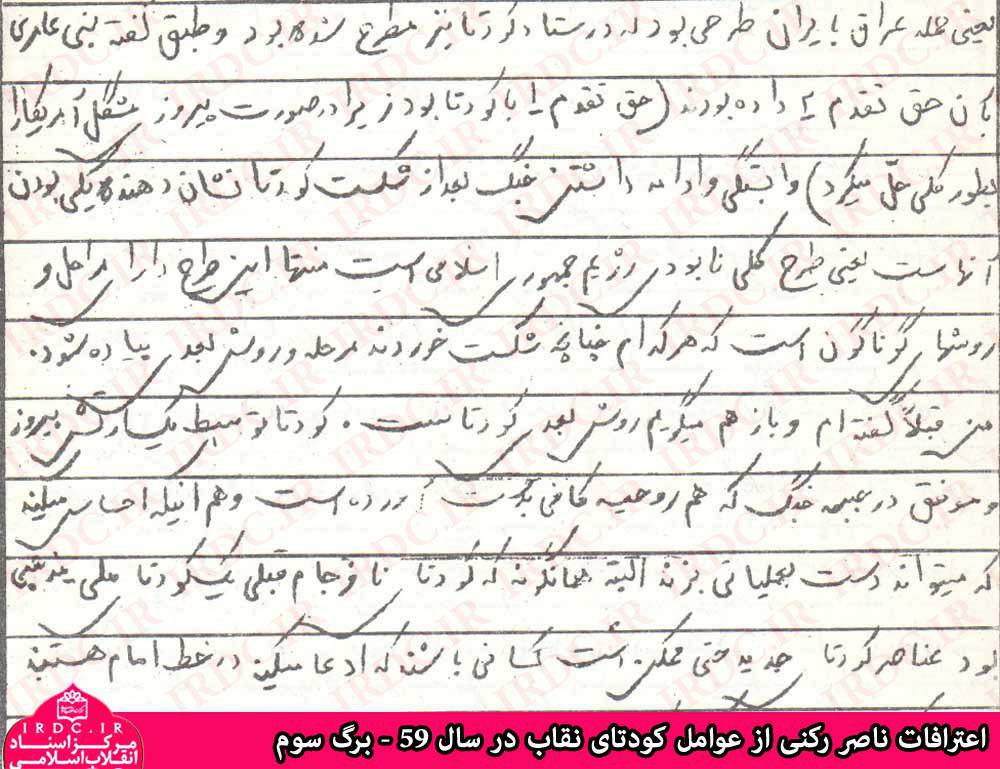 یعنی حمله عراق بایران طرحی بود که در ستاد کودتا نیز مطرح شده بود و طبق گفته بنی عامری
بآن حق تقدم ۲ داده بودند (حق تقدم ۱ با کودتا بود زیرا در صورت پیروزی مشکل آمریکا را
بطور کلی حل میکرد) وابستگی و ادامه داشتن جنگ بعد از شکست کودتا نشان دهنده یکی بودن
آنهاست یعنی طرح کلی نابودی رژیم جمهوری اسلامی است منتها این طرح دارای مراحل و
روشهای گوناگون است که هر کدام چنانچه شکست خوردند مرحله و روش بعدی پیاده شود.
من قبلاً گفته ام و باز هم میگویم روش بعدی کودتاست. کودتا توسط یک ارتش پیروز
و موفق در جبهه جنگ که هم روحیه کافی بدست آورده است و هم اینکه احساس میکند
که میتواند دست بعملیاتی بزند البته همانگونه که کودتای نافرجام قبلی یک کودتای ملی مذهبی
بود عناصر کودتای جدید حتی ممکن است کسانی باشند که ادعا میکنند در خط امام هستند
اعترافات ناصر رکنی از عوامل کودتای نقاب در سال 59 - برگ سوم
IRDC.IR
مرکز اسناد
انقلاب اسلامی